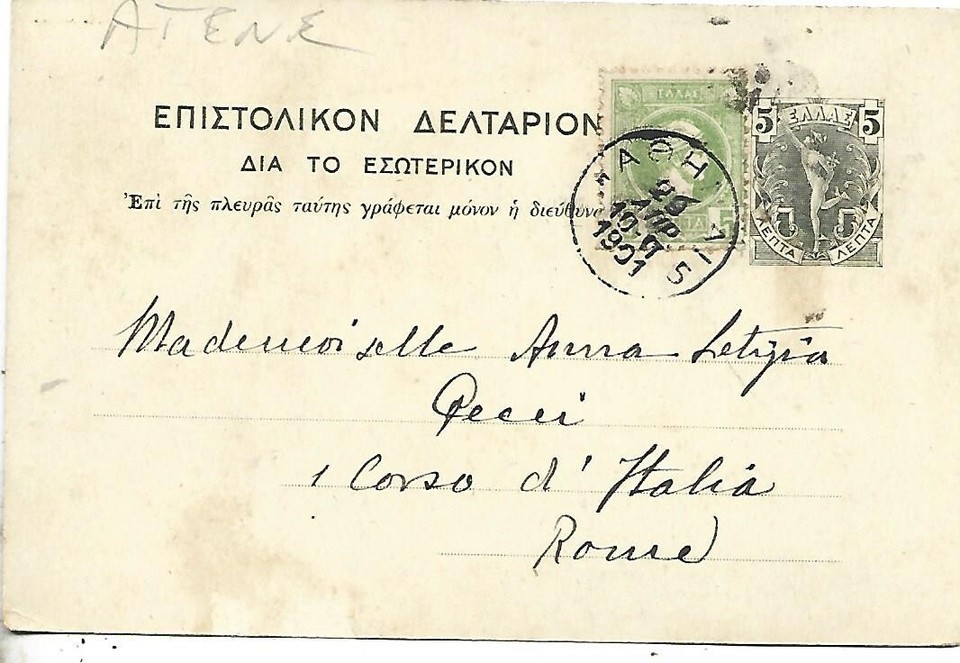 ΑΤΕΝΕ
ΕΠΙΣΤΟΛΙΚΟΝ ΔΕΛΤΑΡΙΟΝ
ΔΙΑ ΤΟ ΕΣΩΤΕΡΙΚΟΝ
Ἐπὶ τῆς πλευρᾶς ταύτης γράφεται μόνον ἡ διεύθυνσ
ΕΛΛΑΣ
5
ΑΘΗ
ΑΠΡ
10-Π
1901
5
5 ΕΛΛΑΣ 5
ΛΕΠΤΑ ΛΕΠΤΑ
Mademoiselle Anna Letizia
Pecci
1 Corso d'Italia
Rome